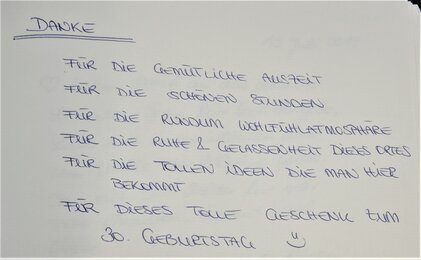 DANKE
FÜR DIE GEMÜTLICHE AUSZEIT
FÜR DIE SCHÖNEN STUNDEN
FÜR DIE RUNDUM WOHLFÜHLATMOSPHÄRE
FÜR DIE RUHE & GELASSENHEIT DIESES ORTES
FÜR DIE TOLLEN IDEEN DIE MAN HIER
BEKOMMT
FÜR DIESES TOLLE GESCHENK ZUM
30. GEBURTSTAG